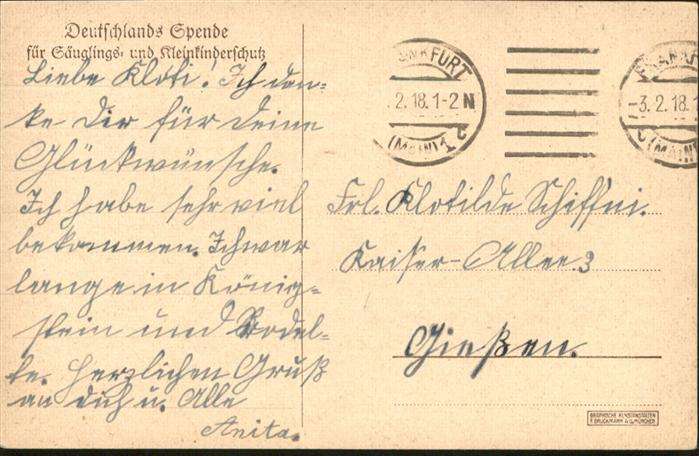 Deutschlands Spende
für Säuglings- und Kleinkinderschutz
Liebe Kloti. Ich dan-
ke Dir für Deine
Glückwünsche.
Ich habe sehr viel
bekommen. Ich war
lange in König-
stein und Rodel-
te. Herzlichen Gruß
an dich u. Alle
Anita.
FRANKFURT
2.18.1-2 N
(MAIN) 1 C
FRANKF
-3.2.18.
(MAIN)
Frl. Klotilde Schiffni.
Kaiser-Allee 3
Gießen.
GRAPHISCHE KUNSTANSTALTEN
F. BRUCKMANN A.G. MÜNCHEN